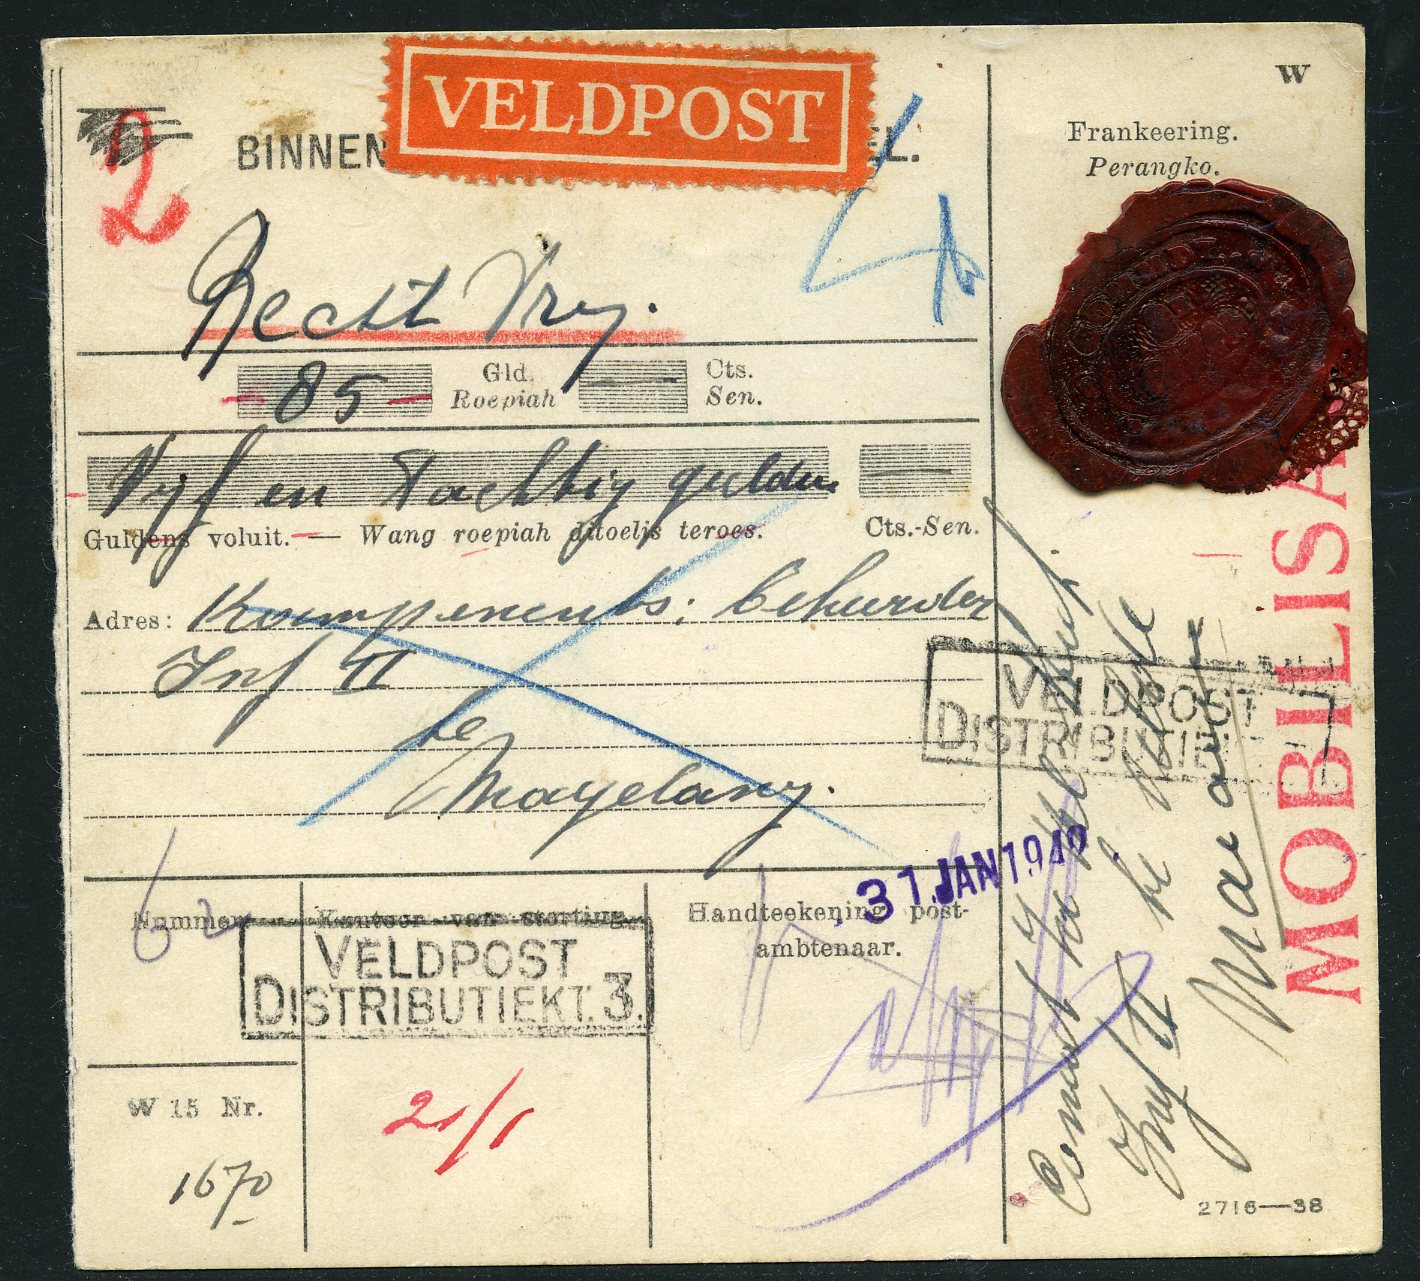 VELDPOST
W
BINNEN EL.
Frankeering.
Perangko.
2
Recht Vry.
85
Gld.
Roepiah
Cts.
Sen.
Vyf en Tachtig gulden
Guldens voluit. — Wang roepiah ditoelis teroes.
Cts.-Sen.
Adres:
Inf II
te
Magelang.
VELDPOST
DISTRIBUTIE
MOBILISA
31 JAN 1942
62
Nummer
Kantoor van storting.
Handteekening post-
ambtenaar.
VELDPOST
DISTRIBUTIEKT. 3.
W 15 Nr.
1670
21/1
Inf II
2716—38